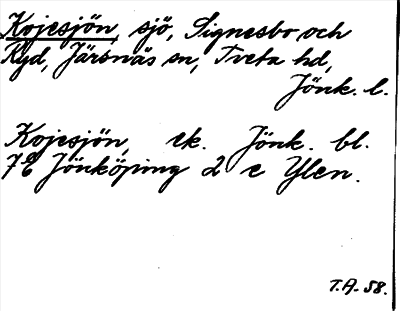 Kojesjön, sjö, Signesbo och
Ryd, Järsnäs sn, Tveta hd,
Jönk. l.
Kojesjön, ek. Jönk. bl.
7E Jönköping 2 e Ylen.
T.A. 58.